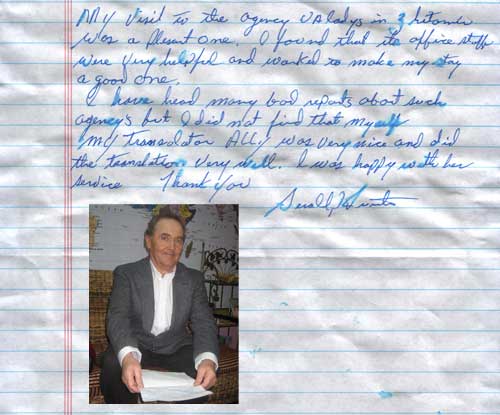 My visit to the agency Valadys in Zhitomir
was a plesant one. I found that its office stuff
were very helpful and worked to make my stay
a good one.
I have head many bad reports about such
agencys but I did not find that myself
My Translator Ally was very nice and did
the translation very well. I was happy with her
service Thank You